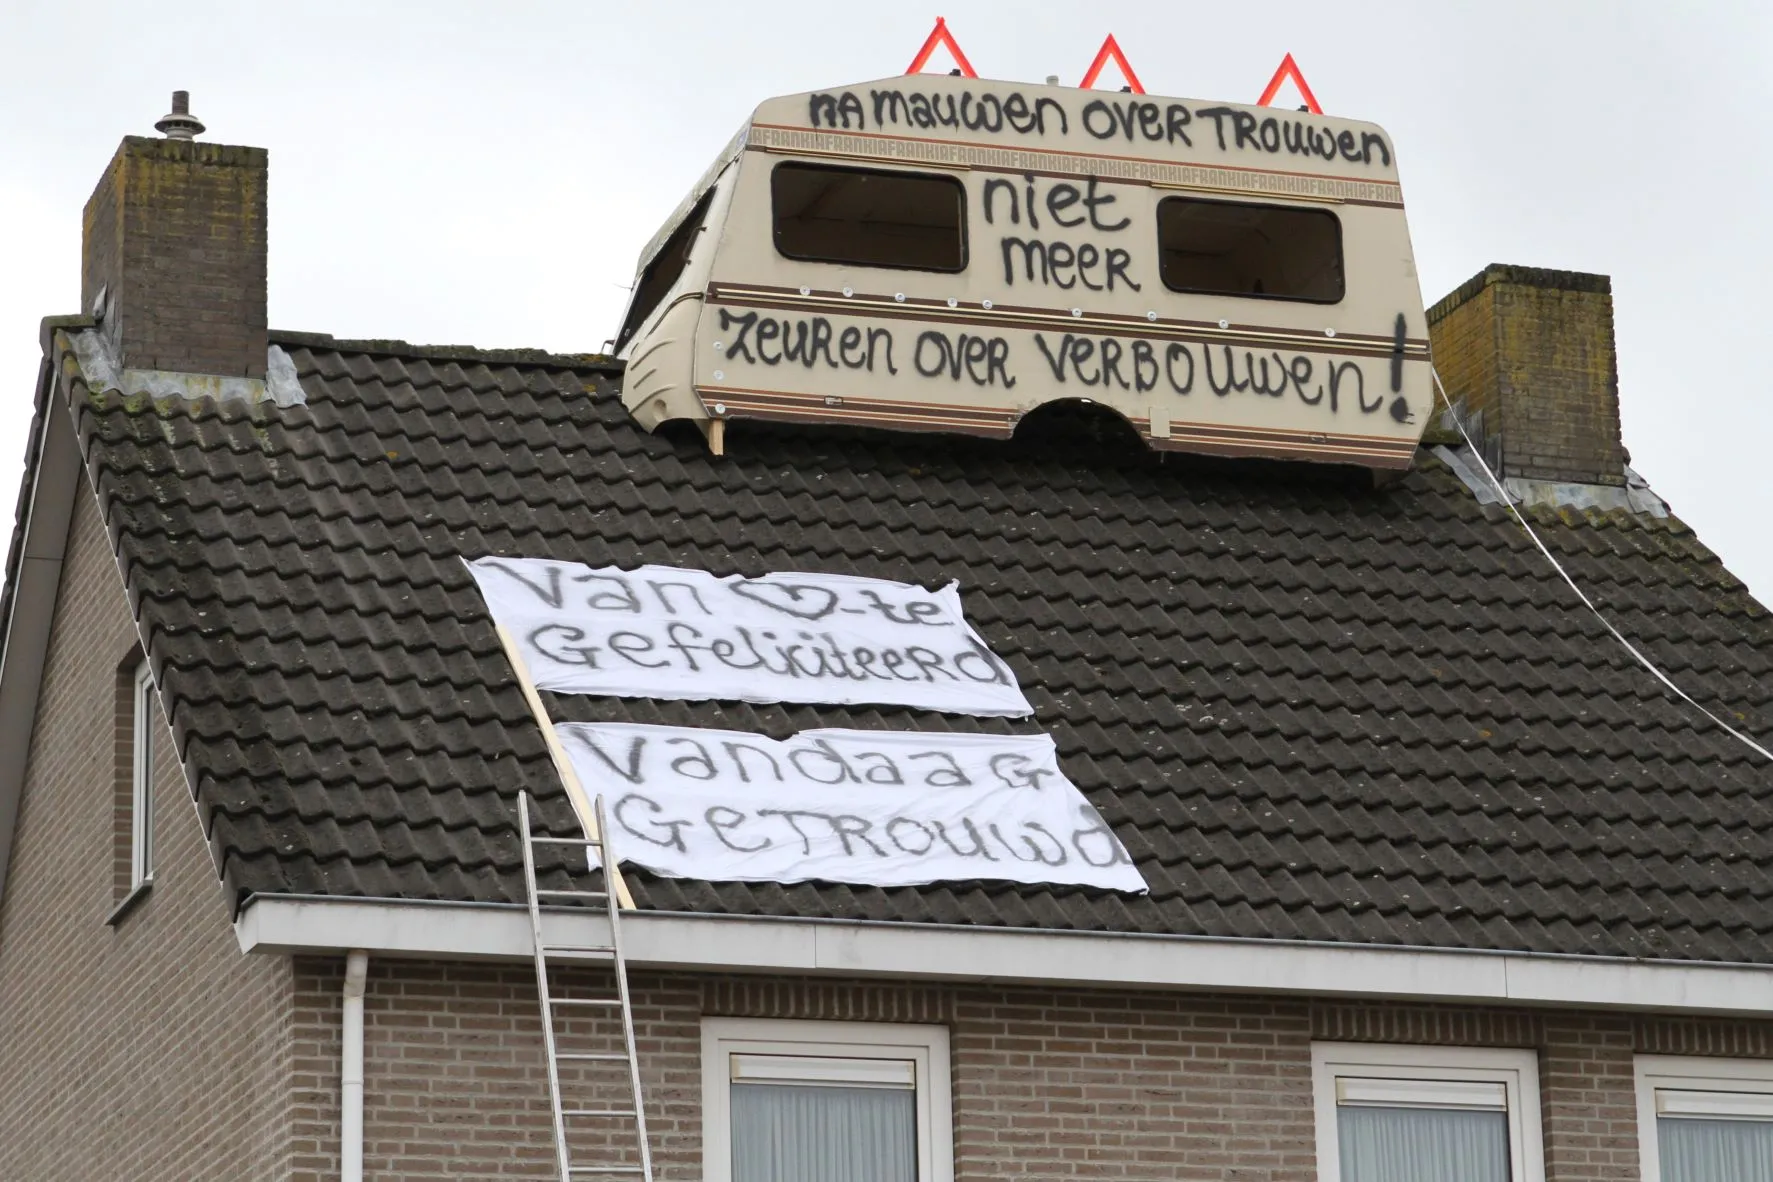 NA MAUWEN OVER TROUWEN
AFRANKIAFRANKIAFRANKIAFRANKIAFRANKIAFRANKIAFRANKIAFRANKIAFRANKIA
niet
meer
ZEUREN OVER VERBOUWEN!
Van ♡-te
Gefeliciteerd
Vandaag
GETROUWD